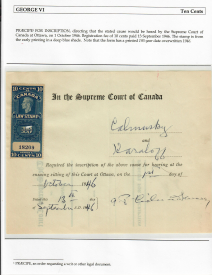 GEORGE VI
Ten Cents
PRÆCIPE FOR INSCRIPTION, directing that the stated cause would be heard by the Supreme Court of
Canada at Ottawa, on 1 October 1946. Registration fee of 10 cents paid 13 September 1946. The stamp is from
the early printing in a deep blue shade. Note that the form has a printed 193 year date overwritten 1946
10 CENTS 10
CANADA
LAW STAMP
18204
10 CENTS 10
In the Supreme Court of Canada
and
Required the inscription of the above cause for hearing at the
ensuing sitting of this Court at Ottawa, on the 1st day of
October 1946
Dated this 13th day of
September 1946
PRÆCIPE, an order requesting a writ or other legal document.